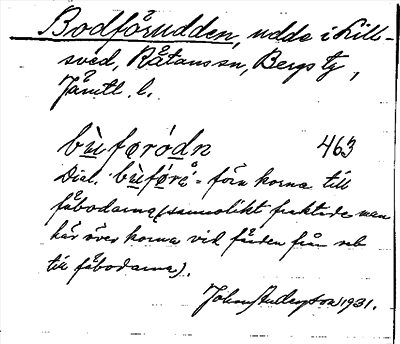 Bodförudden, udde i Kills-
sved, Råtans sn, Bergs tg,
Jämtl. l.
bùførόdn 463
Dial. bùførå = föra korna till
fäbodarna (sannolikt fraktade man
här över korna vid färden från och
till fäbodarna).
John Anderzon 1931.